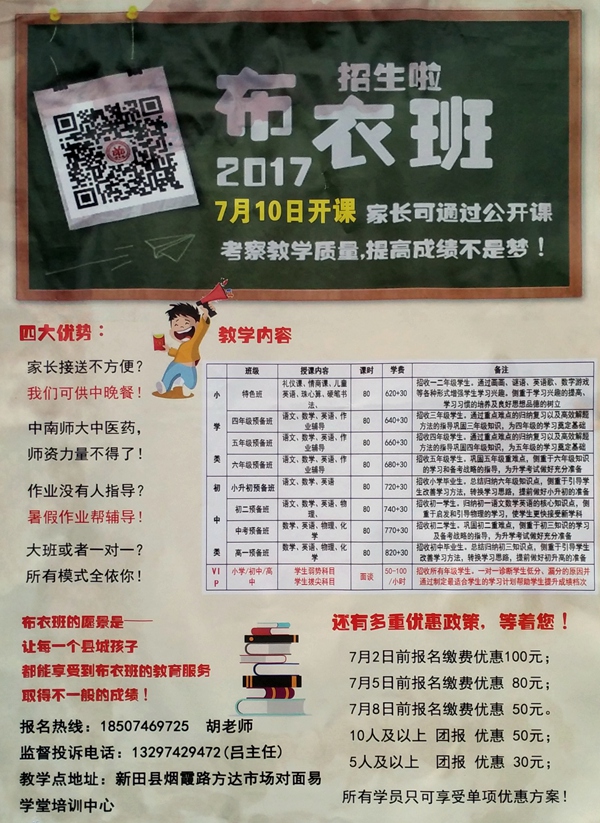 招生啦
布衣班
2017
7月10日开课 家长可通过公开课
考察教学质量,提高成绩不是梦！
四大优势：
家长接送不方便？
我们可供中晚餐！
中南师大中医药，
师资力量不得了！
作业没有人指导？
暑假作业帮辅导！
大班或者一对一？
所有模式全依你！
教学内容
班级 授课内容 课时 学费 备注
小学类
特色班 礼仪课、情商课、儿童英语、珠心算、硬笔书法、 80 620+30 招收一二年级学生，通过画画、谜语、英语歌、数字游戏等各种形式增强学生学习兴趣，侧重于学习兴趣的提高、学习习惯的培养及良好思想品德的树立
四年级预备班 语文、数学、英语、作业辅导 80 640+30 招收三年级学生，通过重点难点的归纳复习以及高效解题方法的指导巩固三年级知识，为四年级的学习奠定基础
五年级预备班 语文、数学、英语、作业辅导 80 660+30 招收四年级学生，通过重点难点的归纳复习以及高效解题方法的指导巩固四年级知识，为五年级的学习奠定基础
六年级预备班 语文、数学、英语、作业辅导 80 680+30 招收五年级学生，巩固五年级重难点，侧重于六年级知识的学习和备考战略的指导，为升学考试做好充分准备
初中类
小升初预备班 语文、数学、英语 80 720+30 招收小学毕业生，总结归纳六年级知识点，侧重于引导学生改善学习方法，转换学习思路，提前做好小升初的准备
初二预备班 语文、数学、英语、物理、 80 740+30 招收初一学生，归纳初一语文数学英语的核心知识点，侧重于启发和引导物理的学习，使学生更快接受新学科
中考预备班 数学、英语、物理、化学 80 770+30 招收初二学生，巩固初二重难点，侧重于初三知识的学习及备考战略的指导，为升学考试做好充分准备
高一预备班 数学、英语、物理、化学 80 820+30 招收初中毕业生，总结归纳初三知识点，侧重于引导学生改善学习方法，转换学习思路，提前做好初升高的准备
VIP 小学/初中/高中 学生弱势科目 学生拔尖科目 面谈 50-100/小时 招收所有年级学生，一对一诊断学生低分、漏分的原因并通过制定最适合学生的学习计划帮助学生提升成绩档次
布衣班的愿景是——
让每一个县城孩子
都能享受到布衣班的教育服务
取得不一般的成绩！
报名热线：18507469725 胡老师
监督投诉电话：13297429472(吕主任)
教学点地址：新田县烟霞路方达市场对面易
学堂培训中心
还有多重优惠政策，等着您！
7月2日前报名缴费优惠100元；
7月5日前报名缴费优惠 80元；
7月8日前报名缴费优惠 50元。
10人及以上 团报 优惠 50元；
5人及以上 团报 优惠 30元；
所有学员只可享受单项优惠方案！